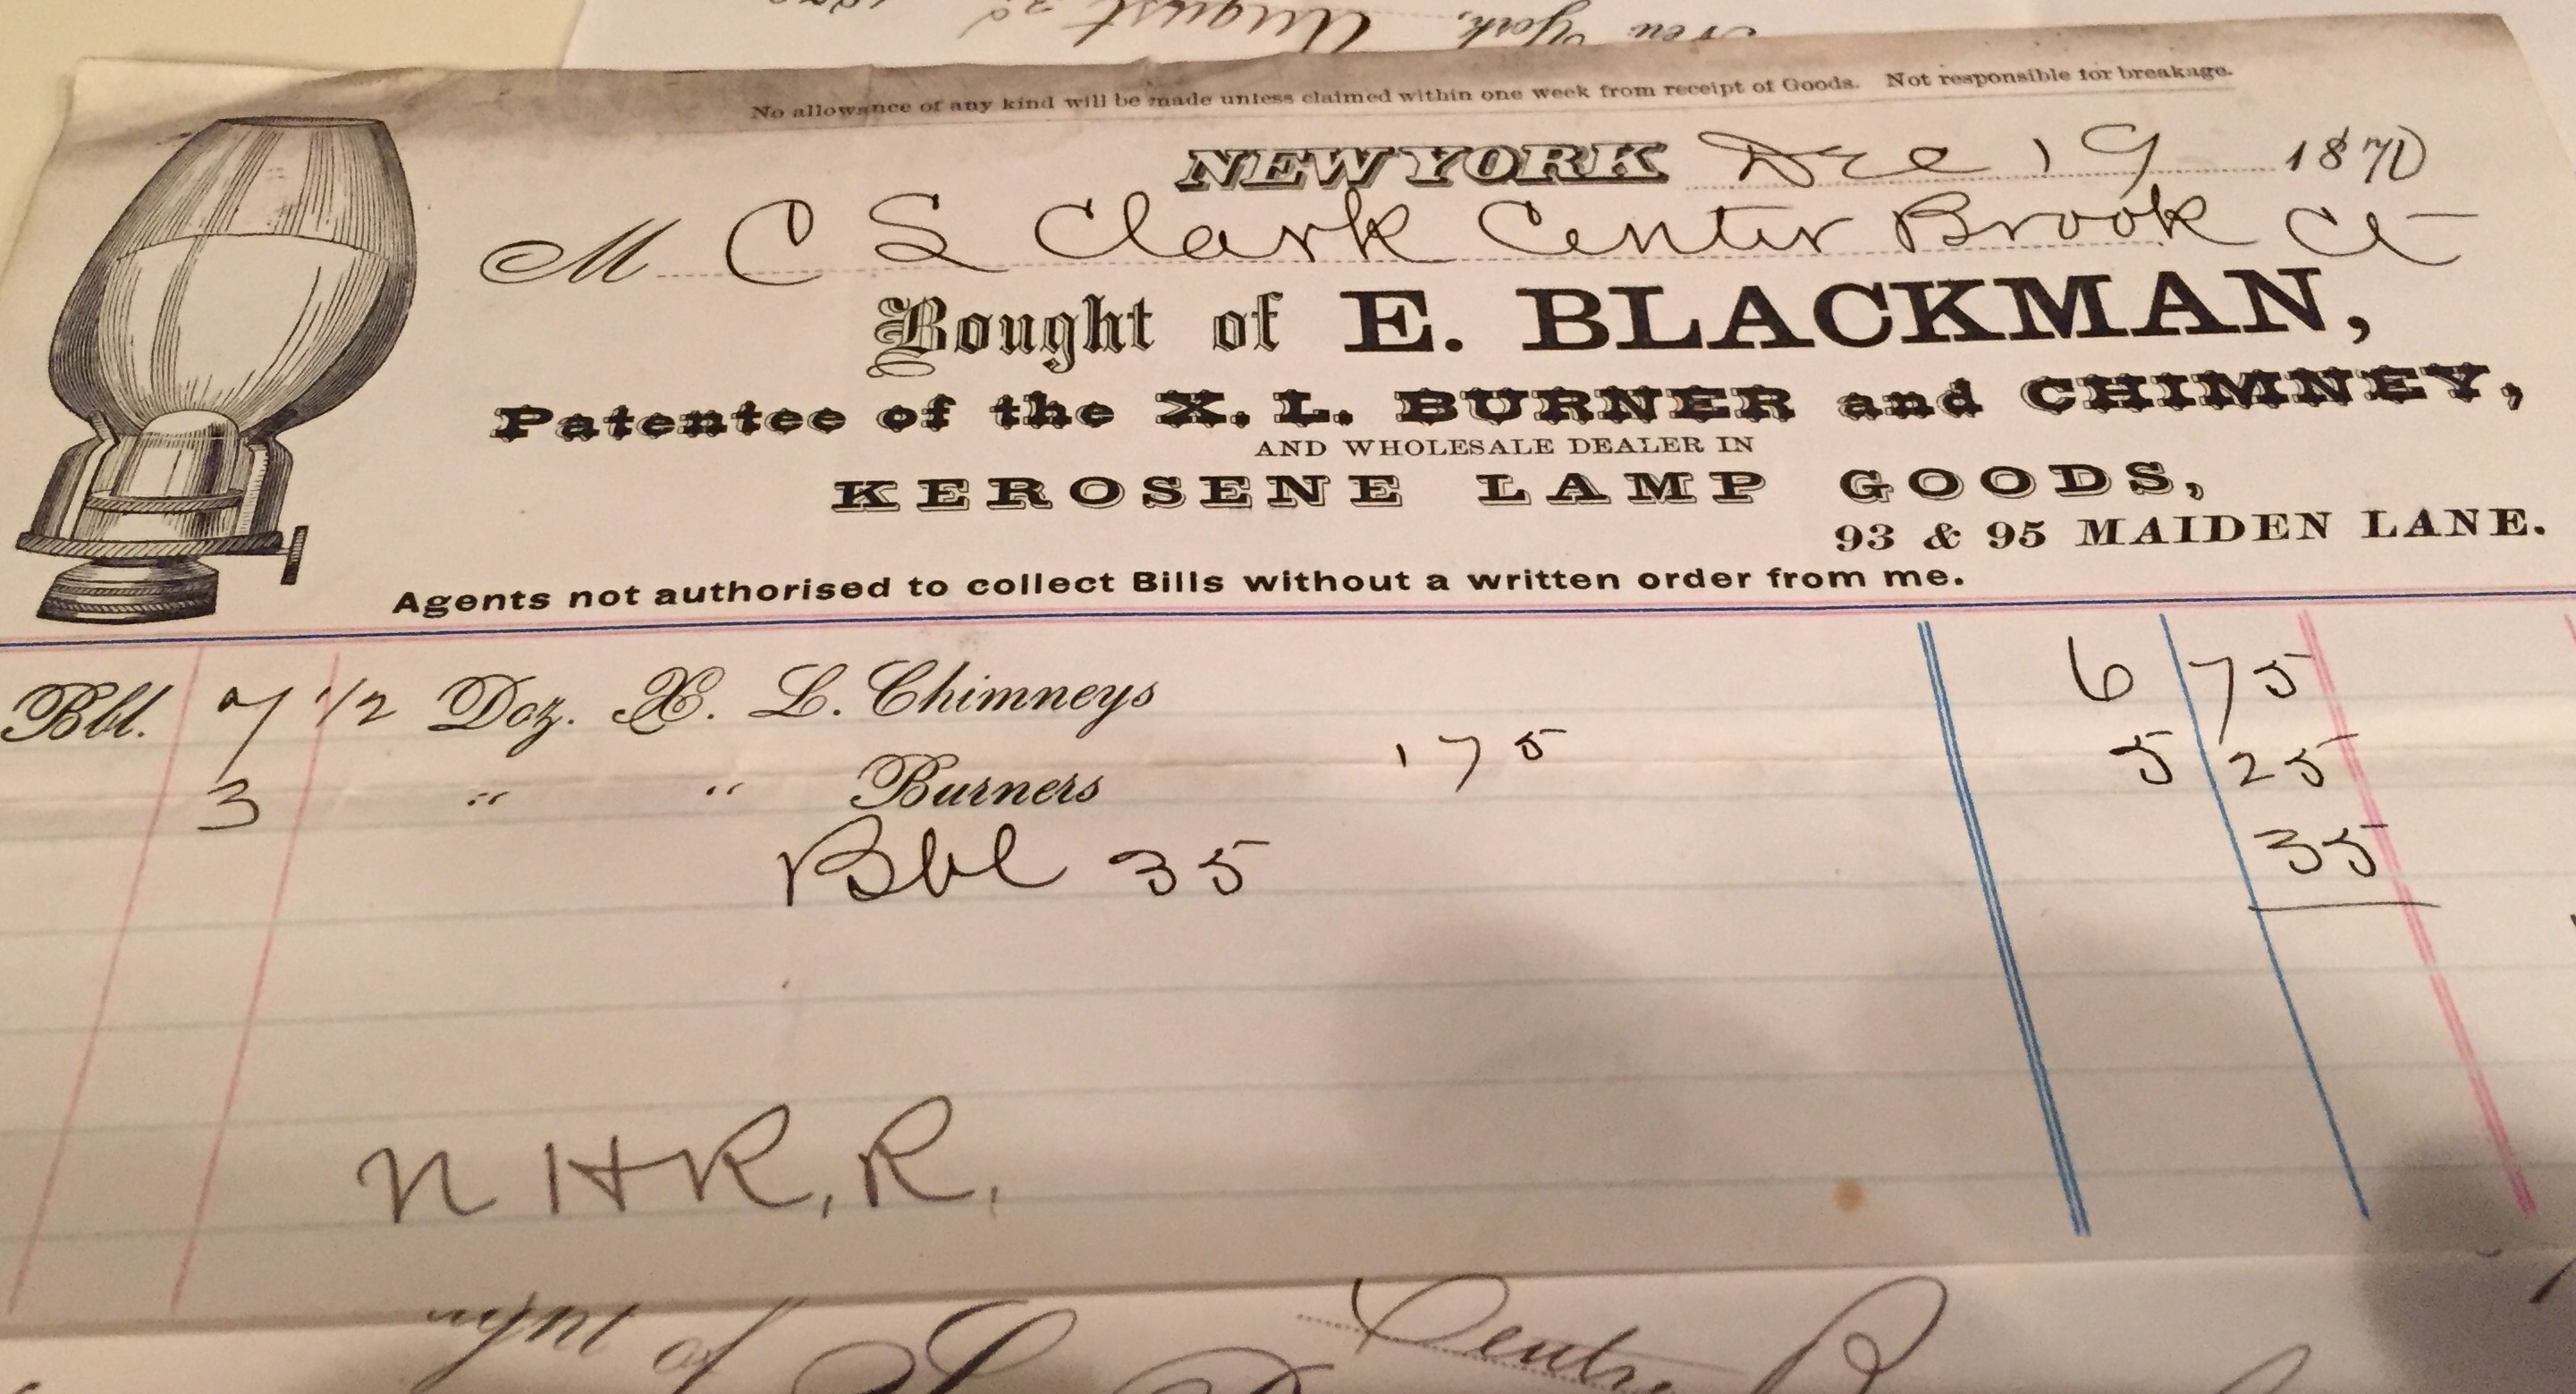 New York, August 2d
No allowance of any kind will be made unless claimed within one week from receipt of Goods. Not responsible for breakage.
NEW YORK Dec 19 1870
M C S Clark Center Brook Ct
Bought of E. BLACKMAN,
Patentee of the X. L. BURNER and CHIMNEY,
AND WHOLESALE DEALER IN
KEROSENE LAMP GOODS,
93 & 95 MAIDEN LANE.
Agents not authorised to collect Bills without a written order from me.
Bbl. 7 1/2 Doz. X. L. Chimneys 6 75
3 " " Burners 175 5 25
Bbl 35 35
N H R. R.
of